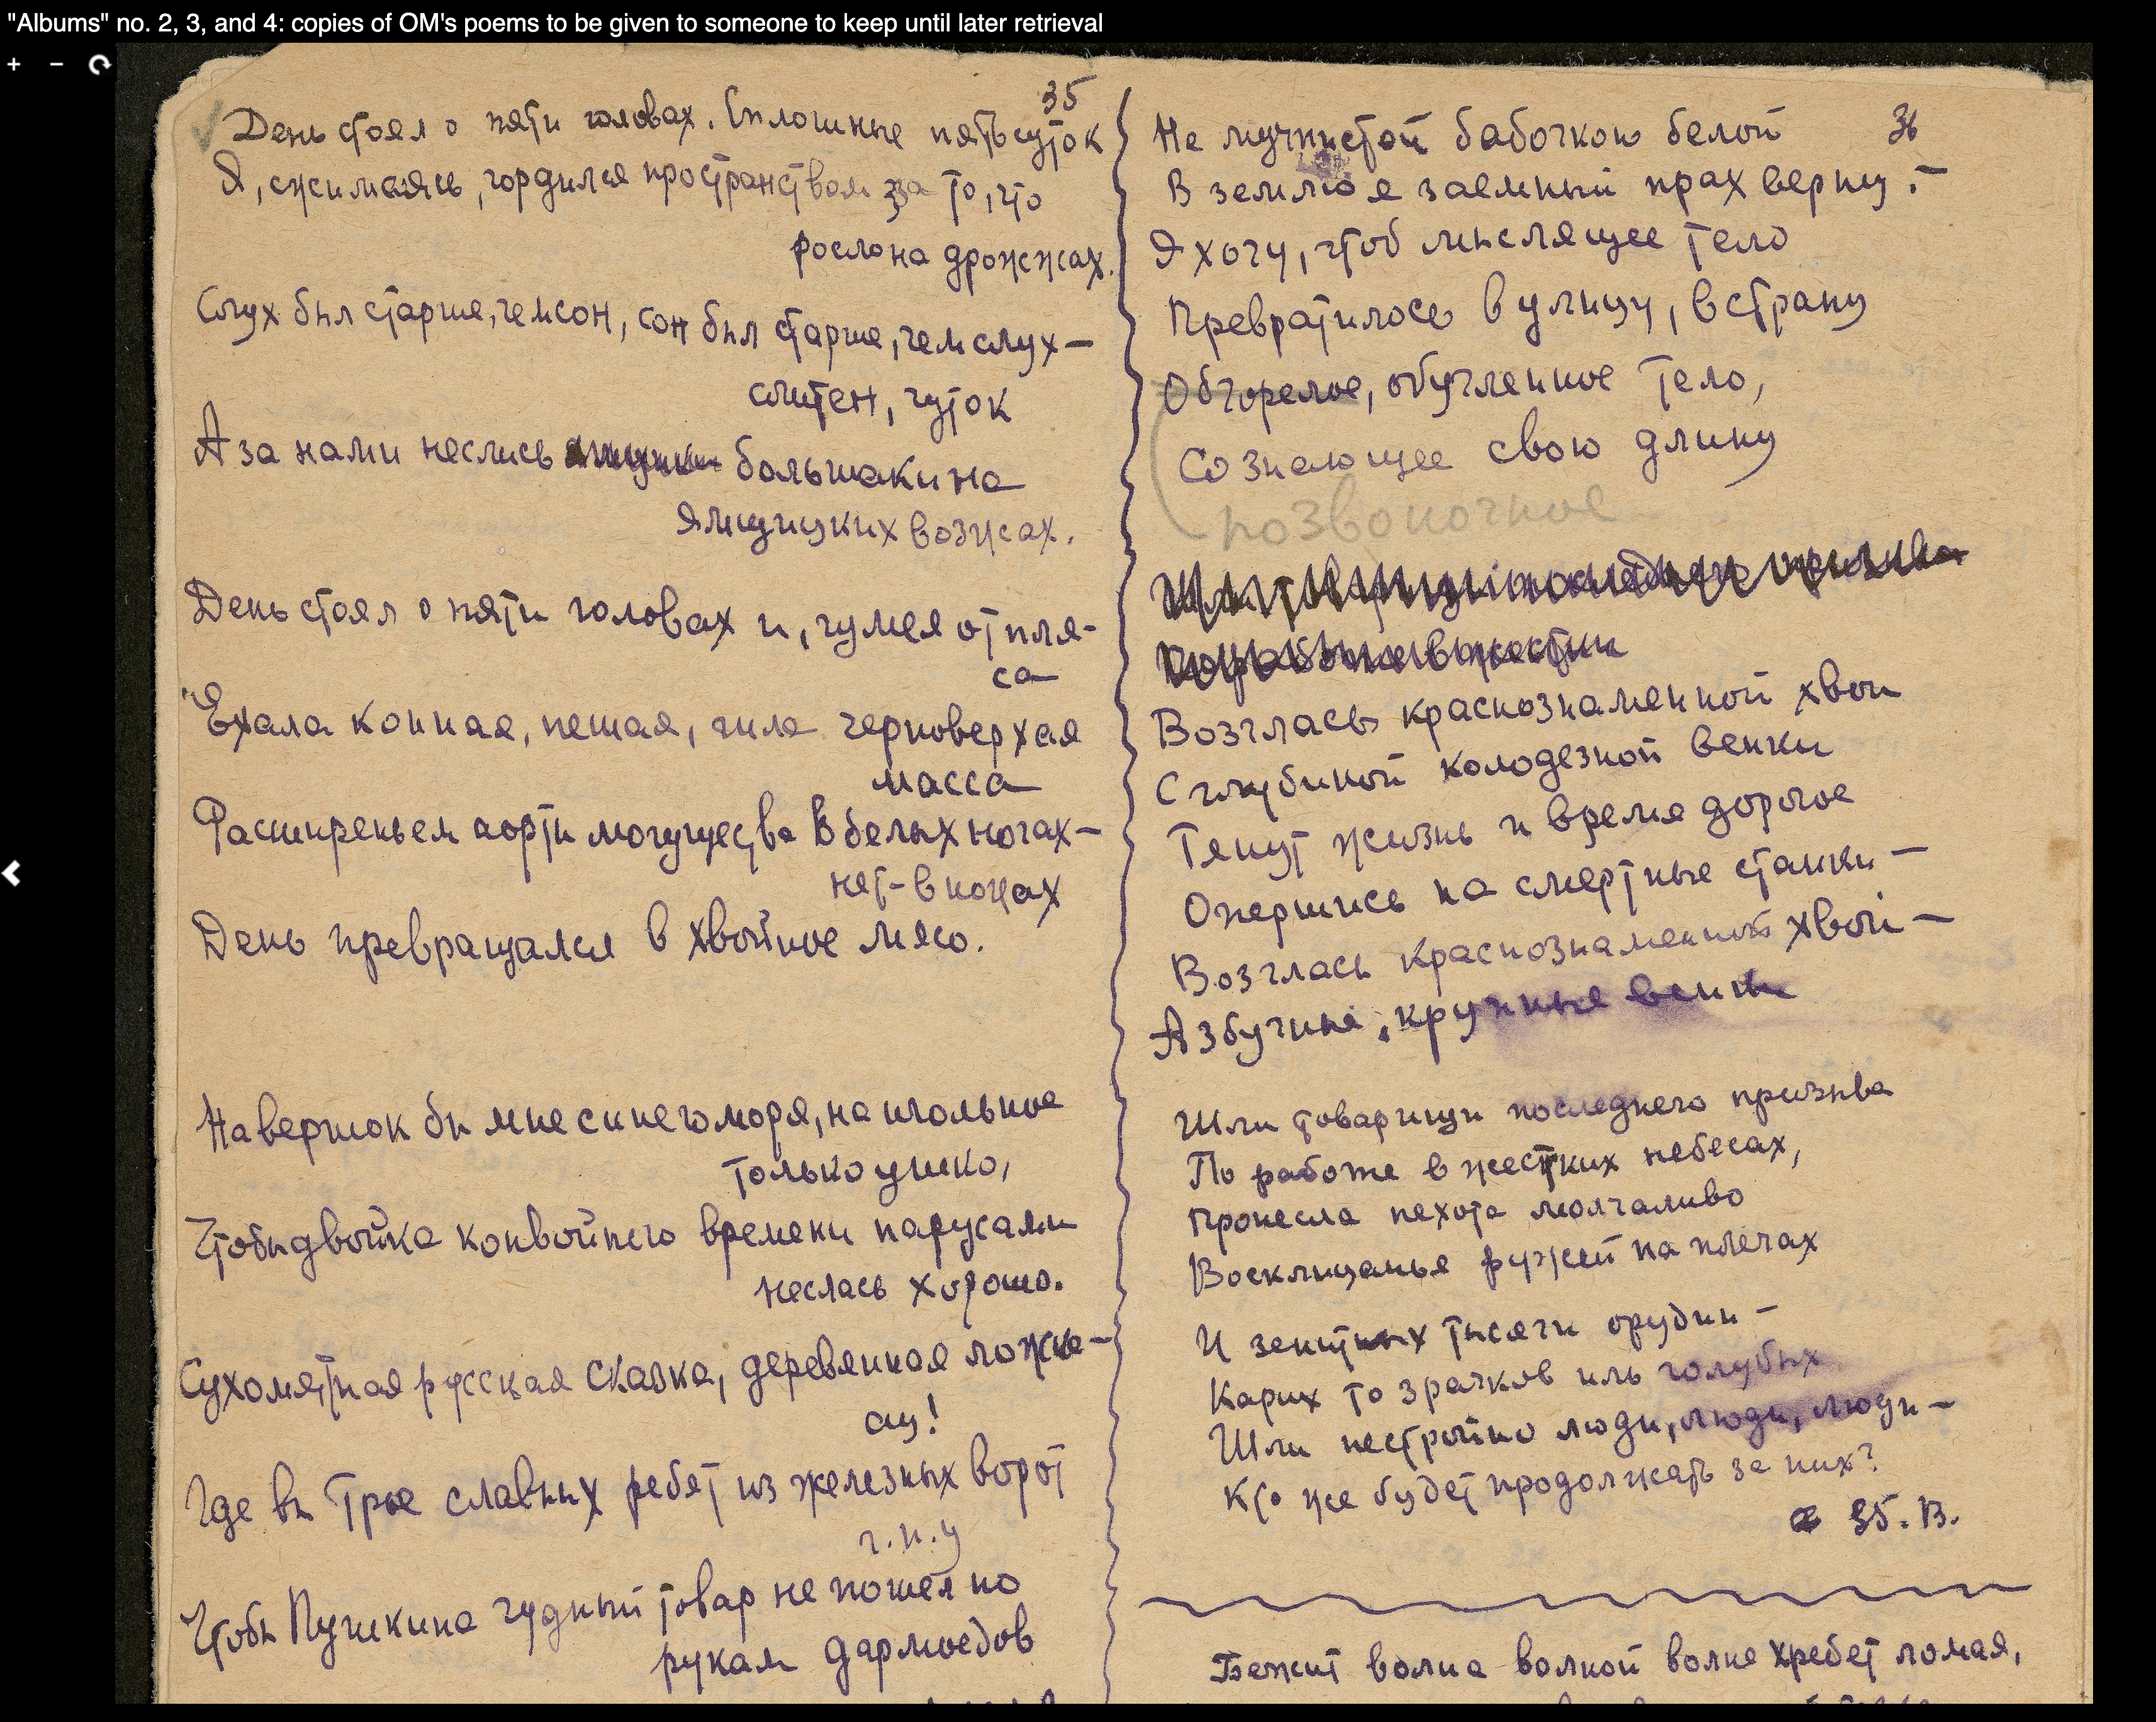 "Albums" no. 2, 3, and 4: copies of OM's poems to be given to someone to keep until later retrieval
35
День стоял о пяти головах. Сплошные пять суток
Я, сжимаясь, гордился пространством за то, что
росло на дрожжах.
Слух был старше, чем сон, сон был старше, чем слух —
слитен, чуток
А за нами неслись большаки на
ямщицких вожжах.
День стоял о пяти головах и, чумея от пля-
са
Ехала конная, пешая, шла черноверхая
масса
Расширеньем аорты могущества в белых ногах —
нет - в ножах
День превращался в хвойное мясо.
На вершок бы мне синего моря, на игольное
только ушко,
Чтобы двойка конвойного времени парусами
неслась хорошо.
Сухомятная русская сказка, деревянная ложка —
ау!
Где вы трое славных ребят из железных ворот
г.п.у
Чтобы Пушкина чудный товар не пошел по
рукам дармоедов
36
Не мучнистой бабочкою белой
В землю я заемный прах верну. —
Я хочу, чтоб мыслящее тело
Превратилось в улицу, в страну
Обгорелое, обугленное тело,
Сознающее свою длину
позвоночное
Шли товарищи последнего призыва
По работе в жестких
Возгласы краснознаменной хвои
С глубиной колодезной венки
Тянут жизнь и время дорогое
Опершись на смертные станки —
Возгласы краснознаменной хвои —
Азбучные, крупные венки
Шли товарищи последнего призыва
По работе в жестких небесах,
Пронесла пехота молчаливо
Восклицанья ружей на плечах
И зенитных тысячи орудий —
Карих то зрачков иль голубых
Шли нестройно люди, люди, люди —
Кто же будет продолжать за них?
35. В.
Бежит волна волной волне хребет ломая,